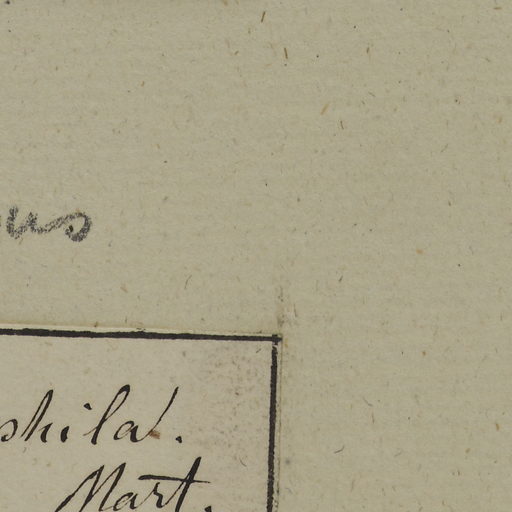 us
shila.
Mart.